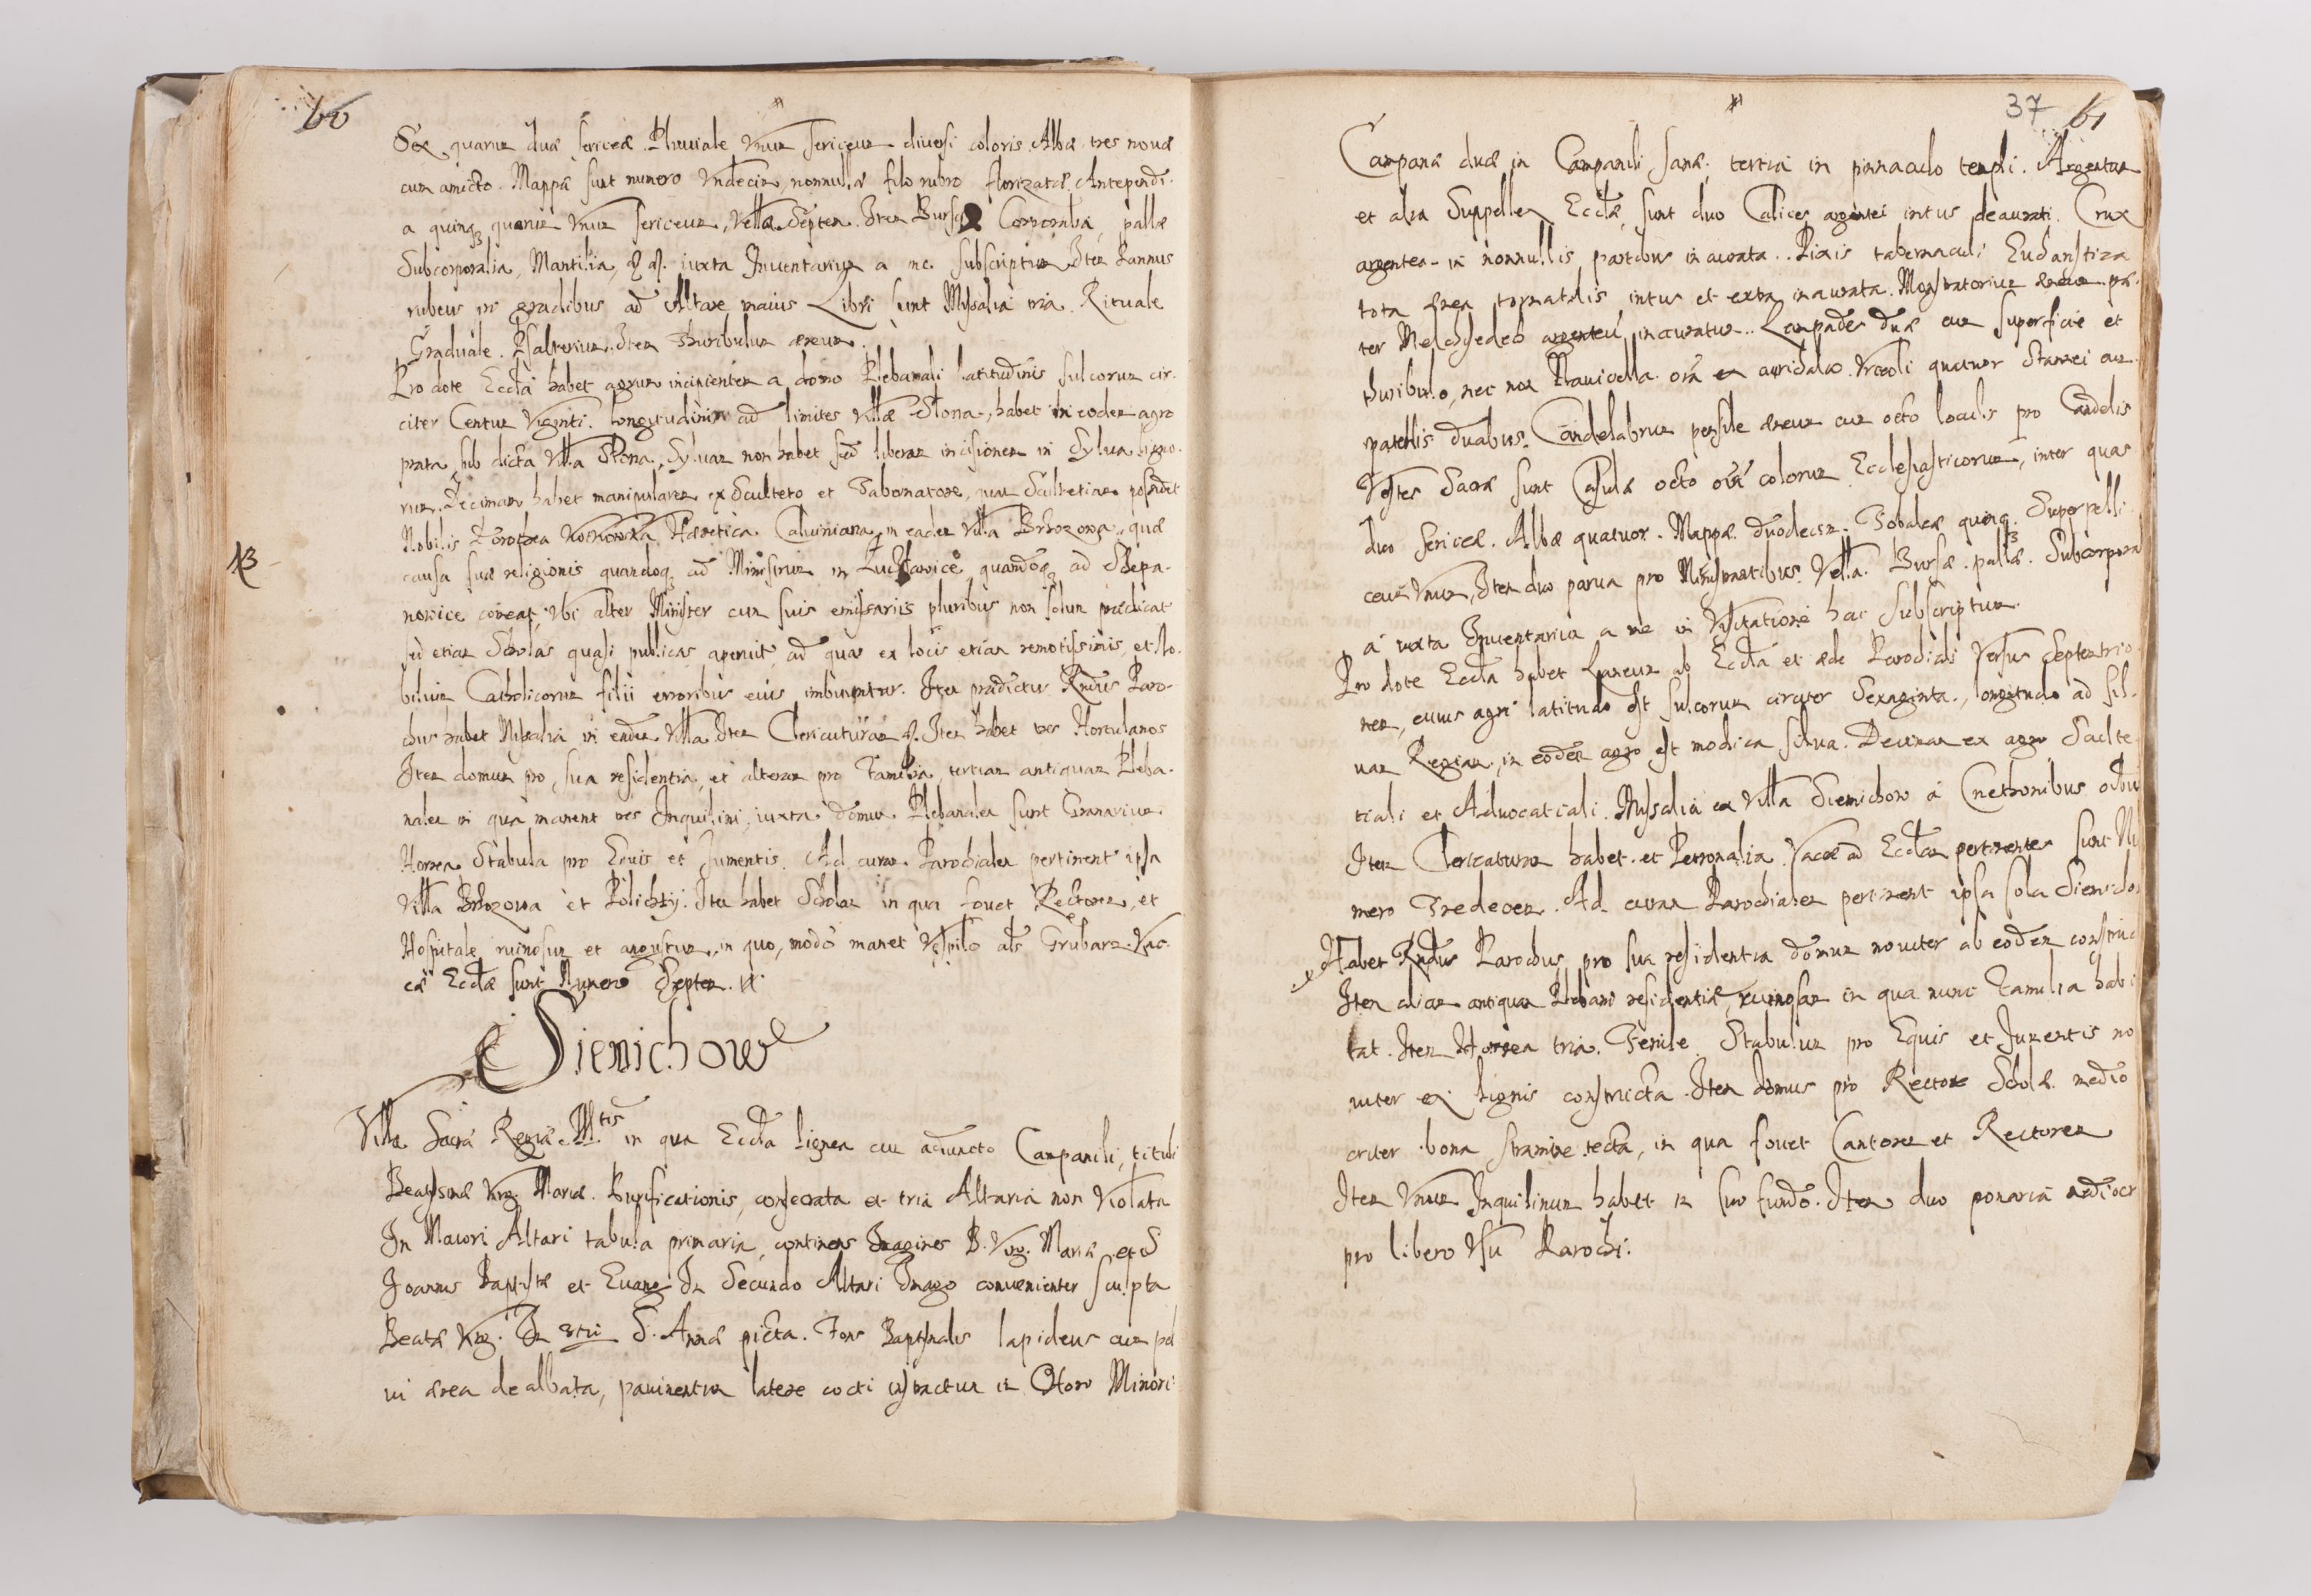 60
Sex quarum duae sericeae. Pluviale Vnum sericeum diversi coloris. Albae tres novae
cum amicto. Mappae sunt numero Vndecim, nonnullae filo rubro florizatae. Antependi-
a quinq quarum Vnum sericeum, Vella Septem. Item Bursae Corporalia, pallae
Subcorporalia, Mantilia, iuxta Inventarium a me subscriptum Item Pannus
rubeus pro gradibus ad Altare maius Libri sunt Missalia tria. Rituale
Graduale. Psalterium. Item Thuribulum aereum.
Pro dote Eccla habet agrum incipientem a domo Plebanali latitudinis sulcorum cir-
citer Centum Viginti. longitudinem ad limites Villae Slona, habet in eodem agro
prata sub dicta Villa Slona, Sylvam non habet sed liberam incisionem in Sylva ligno-
rum. Decimam habet manipularem ex Sculteto et Tabernatore, quam Scultetiam possidet
Nobilis Dorothea Haeretica Calviniana in eadem Villa Brzozowa, quae
13
causa suae religionis quandoq ad Ministrum in Lucławice quandoq ad Szczepa-
nowice comeat, Vbi alter Minister cum suis emissariis pluribus non solum praedicat
sed etiam Scholas quasi publicas aperuit, ad quas ex locis etiam remotissimis, et No-
bilium Catholicorum filii erroribus eius imbuuntur. Item praedictus Rndus Paro-
chus habet Missalia in eadem Villa. Item Clericaturam. Item habet tres Hortulanos
Item domum pro sua residentia, et alteram pro Familia, tertiam antiquam Pleba-
nalem in qua manent tres Inquilini, iuxta domum Plebanalem sunt Granarium.
Horrea Stabula pro Equis et Jumentis. Ad curam Parochialem pertinent ipsa
Villa Brzozowa et Polichty. Item habet Scholam in qua fovet Rectorem, et
Hospitale ruinosum et angustum, in quo, modo manet Vespilo als Grubarz. Vac-
cae Ecclae sunt Numero Septem.
Siemichow
Villa Sacrae Regiae Mtis in qua Eccla lignea cum adiuncto Campanili, tituli
Beatissimae Virg. Mariae Purificationis, consecrata et tria Altaria non Violata
In Maiori Altari tabula primaria, continens Imagines B. Virg. Mariae et S
Joannis Baptistae et Evang. In Secundo Altari Imago convenienter sculpta
Beatae Virg. In 3tii S. Annae picta. Fons Baptismalis lapideus cum pel
vi aerea dealbata, pavimentum latere cocti instractum in Choro Minori
37 61
Campanae duae in Campanili sanae. tertia in pinnaculo templi. Argentum
et alia Suppellex Ecclae, sunt duo Calices argentei intus deaurati. Crux
argentea in nonnullis partibus inaurata. Pixis tabernaculi Eucharistiza
tota aerea tornatilis, intus et extra inaurata. Monstratorium aereum prae-
ter Melchisedech argenteum inauratum. Lampades duae cum superficie et
thuribulo, nec non Navicella oia ex aurichalco. Vrceoli quatuor Stannei cum
patellis duabus. Candelabrum pensile aereum cum octo loculis pro Candelis
Vestes Sacrae sunt Casulae octo oium colorum Ecclesiasticorum, inter quas
duo sericeae. Albae quatuor. Mappae duodecim. Tobaleae quinq. Superpelli-
ceum Vnum, Item duo parva pro Ministrantibus. Vella. Bursae. pallae. Subcorpora
a iuxta Inventarium a me in Visitatione hac subscriptum.
Pro dote Eccla habet Laneum ab Eccla et aede Parochiali Versus Septemtrio-
nem, cuius agri latitudo est sulcorum circiter Sexaginta, longitudo ad sil-
vam Regiam, in eodem agro est modica silva. Decimam ex agro Sculte
tiali et Advocatiali. Missalia ex Villa Siemichow a Cmethonibus oibus
Item Clericaturam habet et Petronalia. Vaccae ad Ecclam pertinentes sunt Nu
mero Tredecem. Ad curam Parochialem pertinent ipsa sola Siemichow
Habet Rndus Parochus pro sua residentia domum noviter ab eodem construc
Item aliam antiquam Plebani residentiae, ruinosam in qua nunc Familia habi
tat. Item Horrea tria. Fenile Stabulum pro Equis et Jumentis no
viter ex lignis constructa. Item domus pro Rectore Scholae medio
criter bona stramine tecta, in qua fovet Cantorem et Rectorem
Item Vnum Inquilinum habet in suo fundo. Item duo pomaria mediocr
pro libero Vsu Parochi.